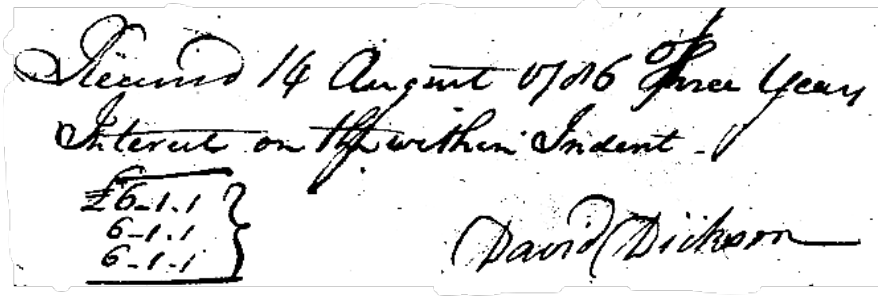 Received 14 August 1786 of Three Years
Interest on the within Indent -
£6-1.1
6-1.1
6-1-1
David Dickson